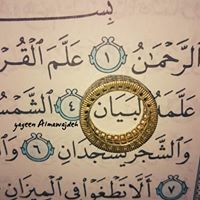 بِسْـ
الرَّحْمَٰنُ ١ عَلَّمَ الْقُرْ
عَلَّمَهُ الْبَيَانَ ٤ الشَّمْسُ
yaqeen Almawajdeh
وَالشَّجَرُ يَسْجُدَانِ ٦ وَال
٧ أَلَّا تَطْغَوْا فِي الْمِيزَانِ